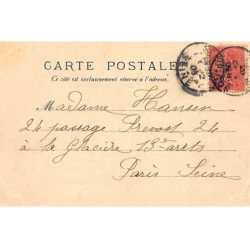 CARTE POSTALE
Ce côté est exclusivement réservé à l'adresse.
Madame Hansen
24 passage Prevost 24
à la Glacière 13e arrts
Paris Seine